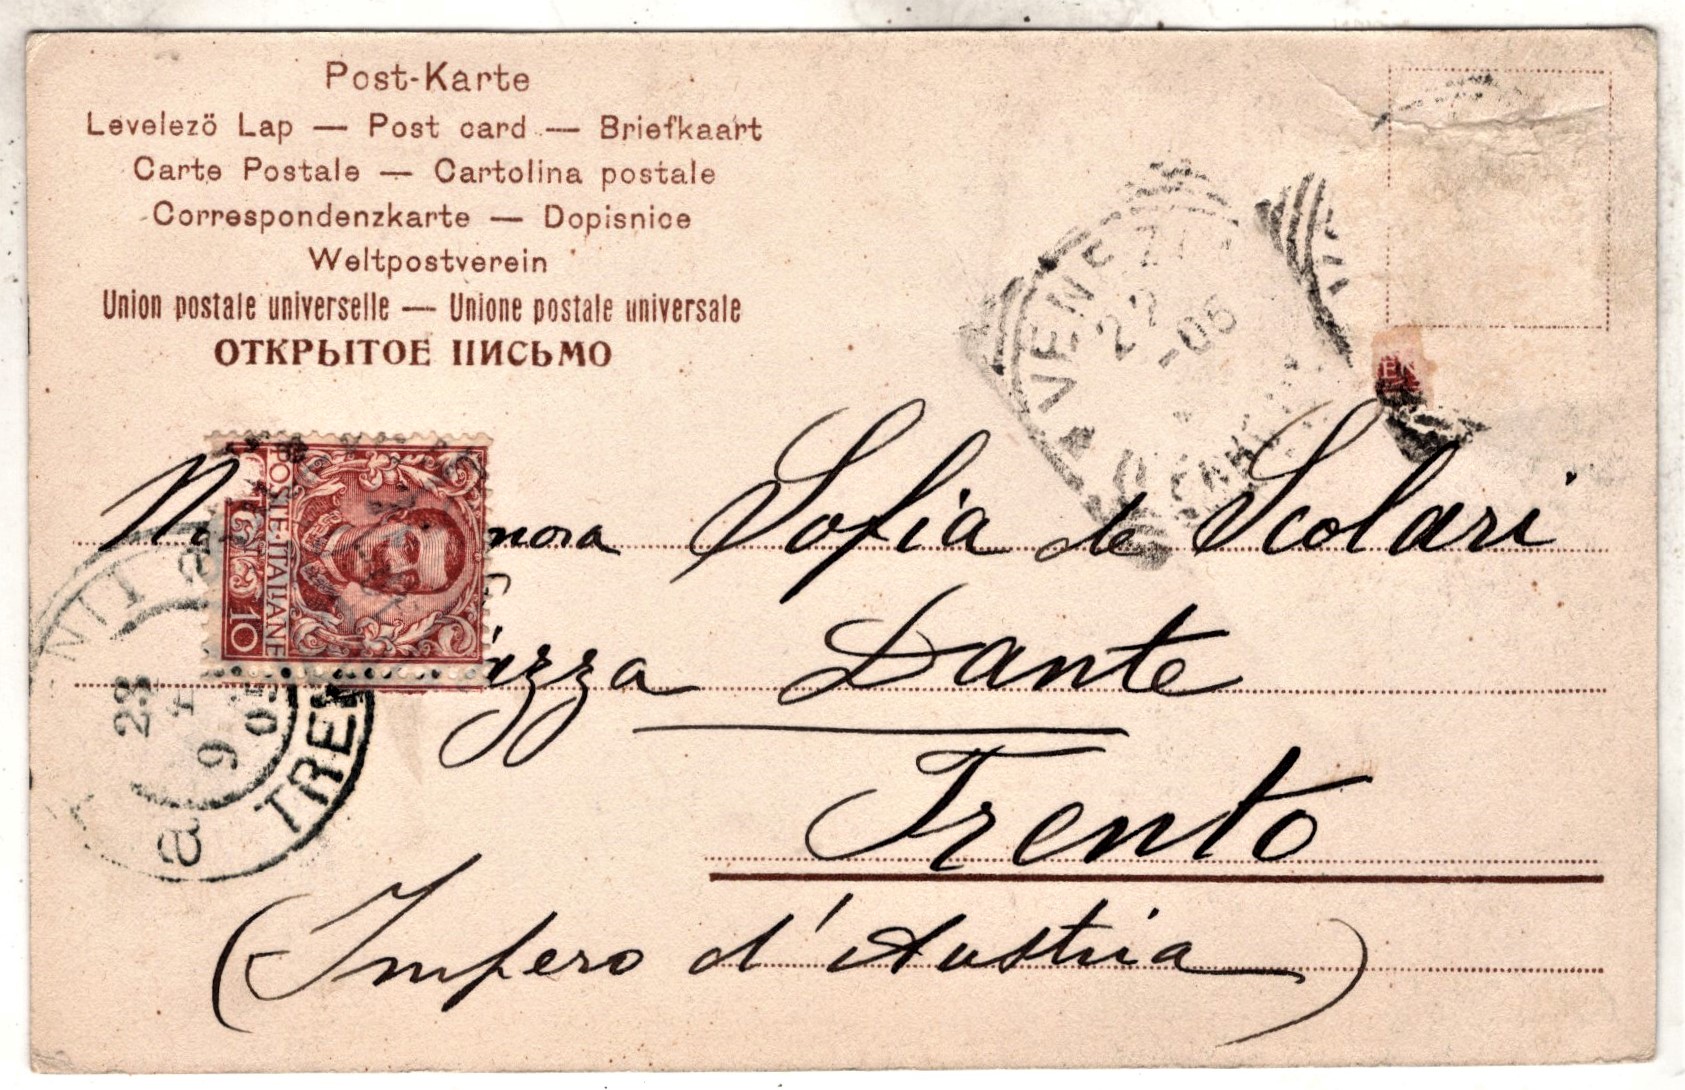 Post-Karte
Levelező Lap — Post card — Briefkaart
Carte Postale — Cartolina postale
Correspondenzkarte — Dopisnice
Weltpostverein
Union postale universelle — Unione postale universale
ОТКРЫТОЕ ПИСЬМО
VENEZIA
22
-05
POSTE ITALIANE
10
Sofia de Scolari
Dante
Trento
(Impero d'Austria)
23
4
9
05
TRE
a